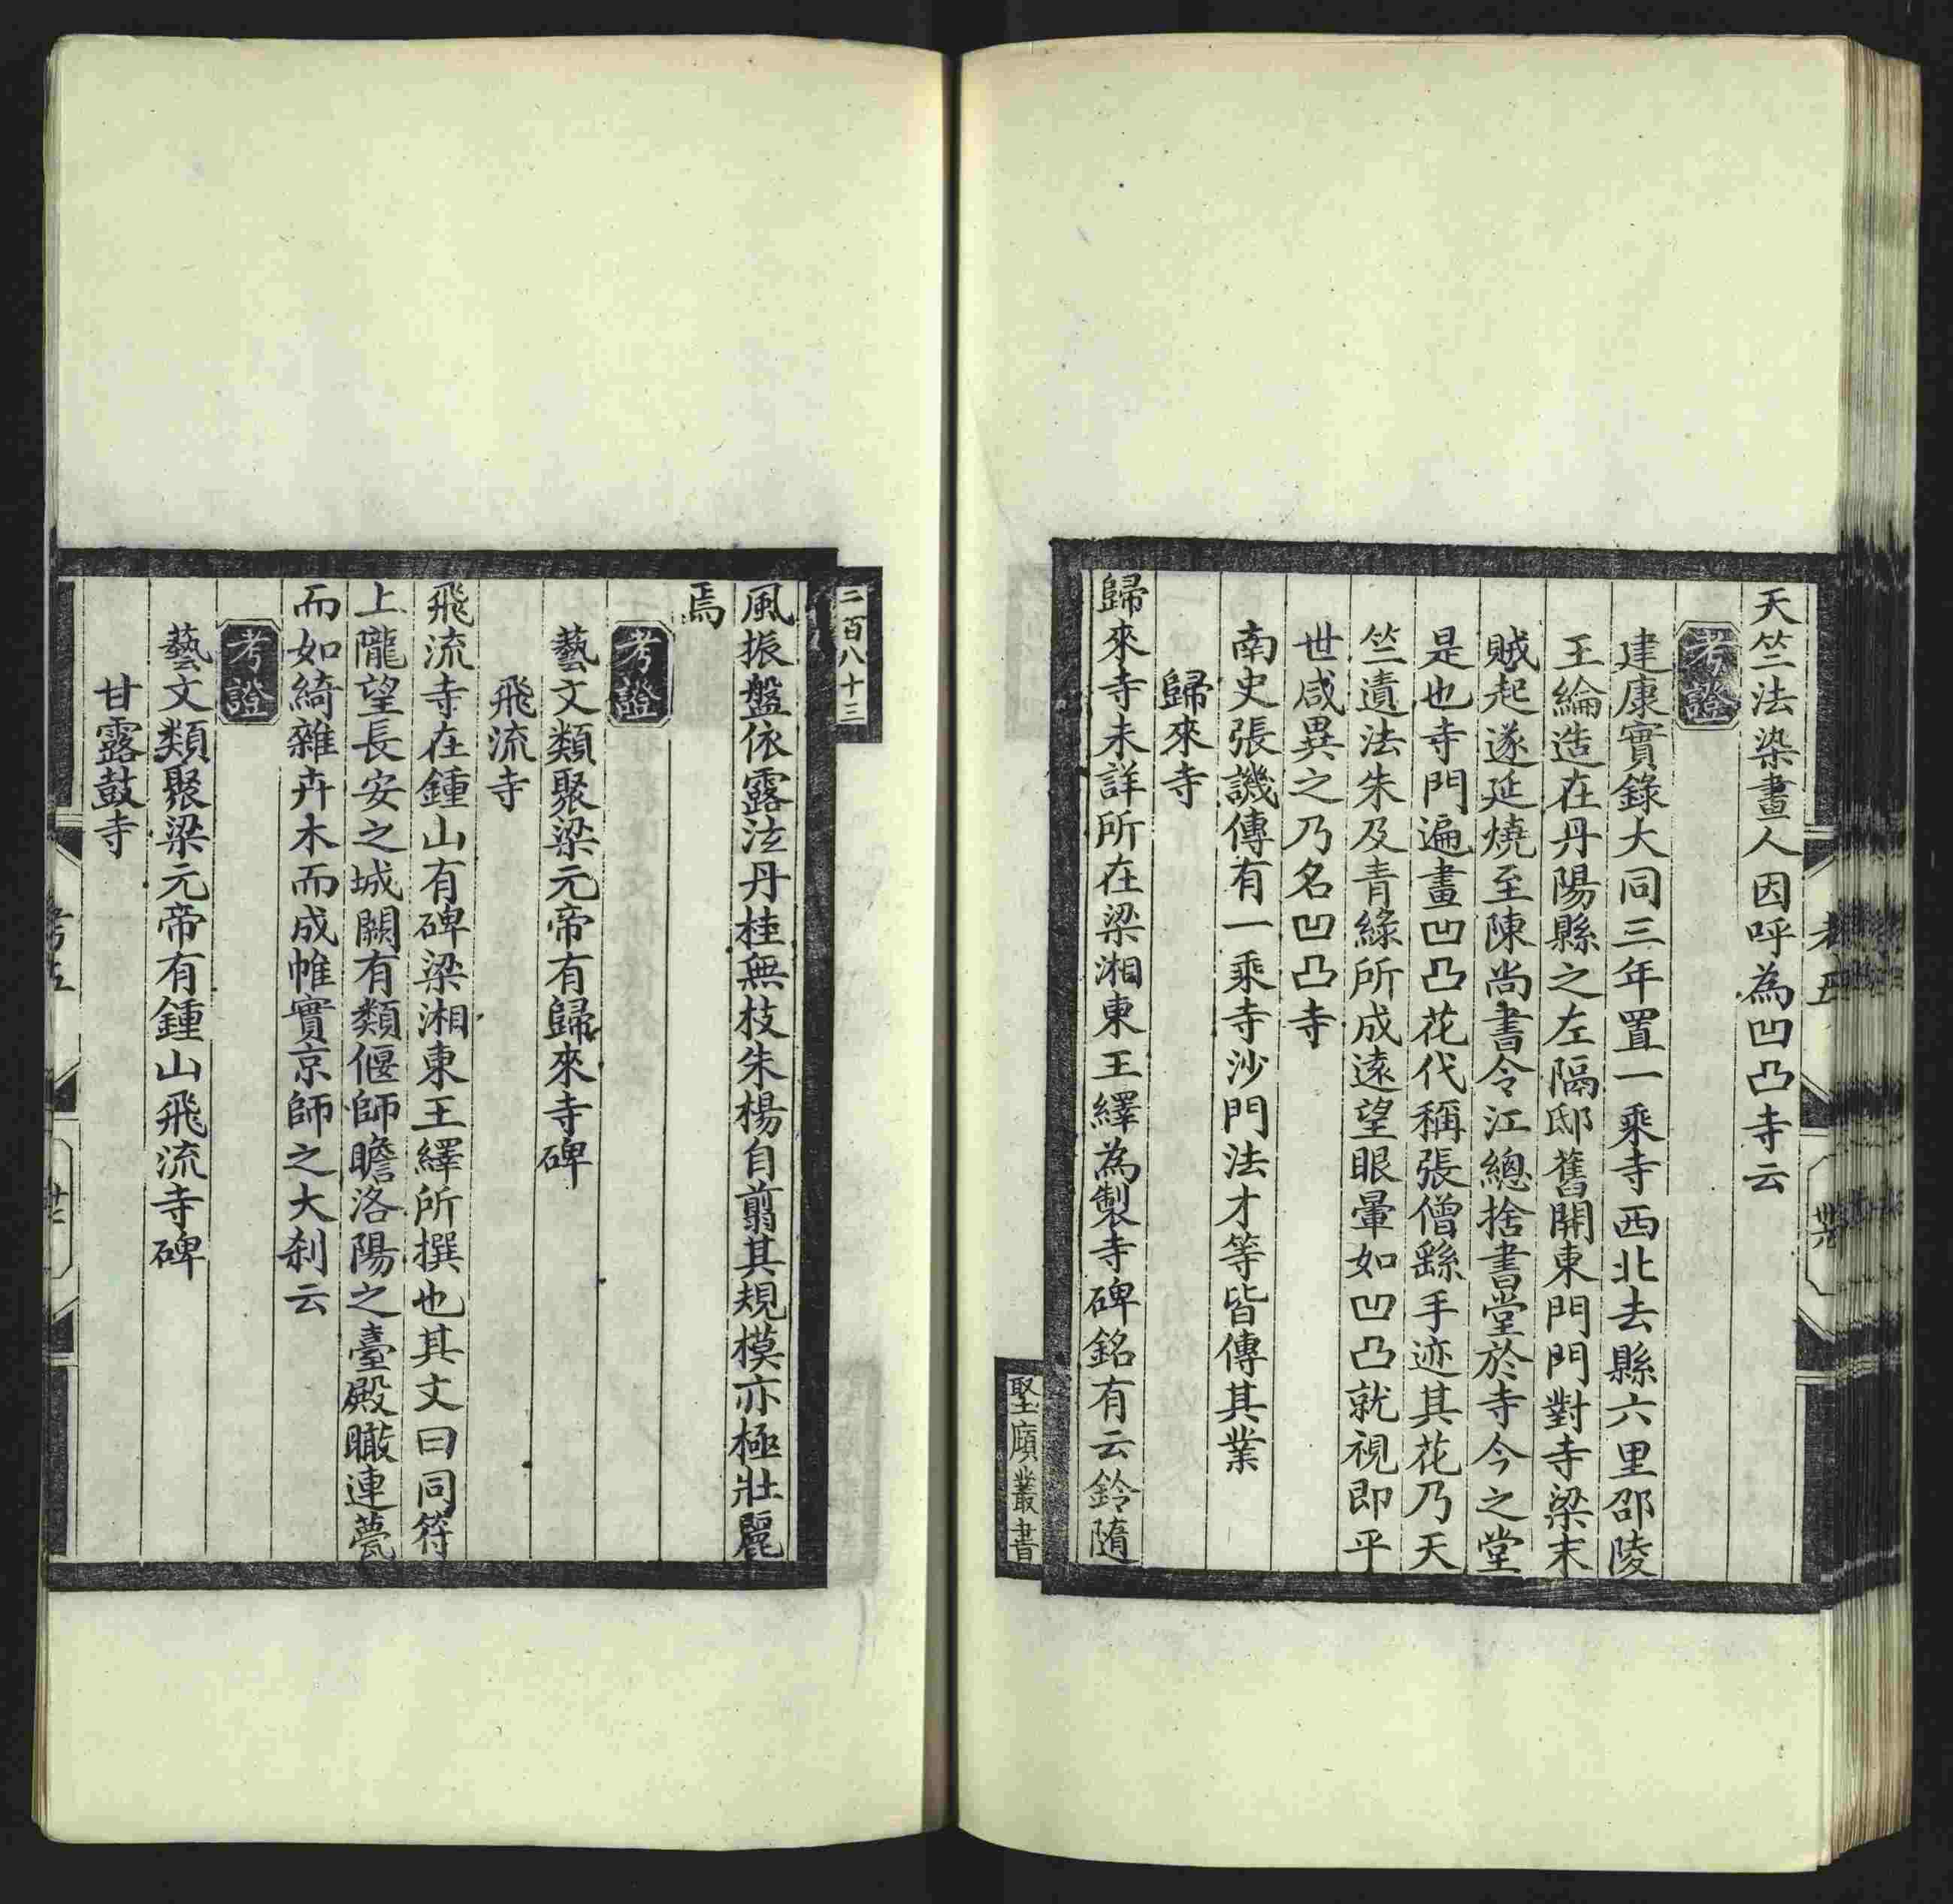 天竺法染畫人因呼為凹凸寺云
考證
建康實錄大同三年置一乘寺西北去縣六里邵陵
王綸造在丹陽縣之左隔邸舊開東門門對寺梁末
賊起遂延燒至陳尚書令江總捨書堂於寺今之堂
是也寺門遍畫凹凸花代稱張僧繇手迹其花乃天
竺遺法朱及青綠所成遠望眼暈如凹凸就視即平
世咸異之乃名凹凸寺
南史張譏傳有一乘寺沙門法才等皆傳其業
歸來寺
歸來寺未詳所在梁湘東王繹為製寺碑銘有云鈴隨
聖廎叢書
二百八十三
風振盤依露泫丹桂無枝朱楊自翦其規模亦極壯麗
焉
考證
藝文類聚梁元帝有歸來寺碑
飛流寺
飛流寺在鍾山有碑梁湘東王繹所撰也其文曰同符
上隴望長安之城闕有類偃師瞻洛陽之臺殿瞰連甍
而如綺雜卉木而成帷實京師之大刹云
考證
藝文類聚梁元帝有鍾山飛流寺碑
甘露鼓寺